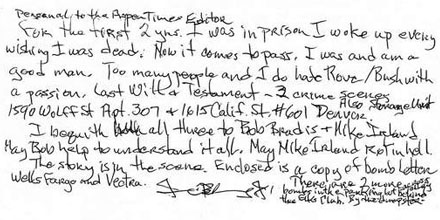 Personal to the Aspen Times Editor
For the first 2 yrs. I was in prison I woke up every
wishing I was dead. Now it comes to pass. I was and am a
good man. Too many people and I do hate Rove/Bush with
a passion. Last Will & Testament - 2 crime scenes
Also storage unit
1590 Wolff St Apt. 307 & 1615 Calif. St. #601 Denver.
I begin with all three to Bob Braudis & Mike Ireland
May Bob help to understand it all. May Mike Ireland Rot in hell.
The story is in the scene. Enclosed is a copy of bomb letter
Wells Fargo and Vectra.
There are 2 more
bombs in the parking lot behind
the Elks Club. by the dumpster